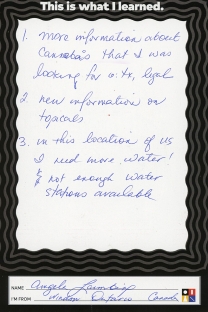 This is what I learned.
1. more information about
Cannabis that I was
looking for i.e. tx, legal
2. new information on
topicals
3. in this location of US
I need more water!
& not enough water
stations available
NAME Angela
I'M FROM Windsor Ontario Canada